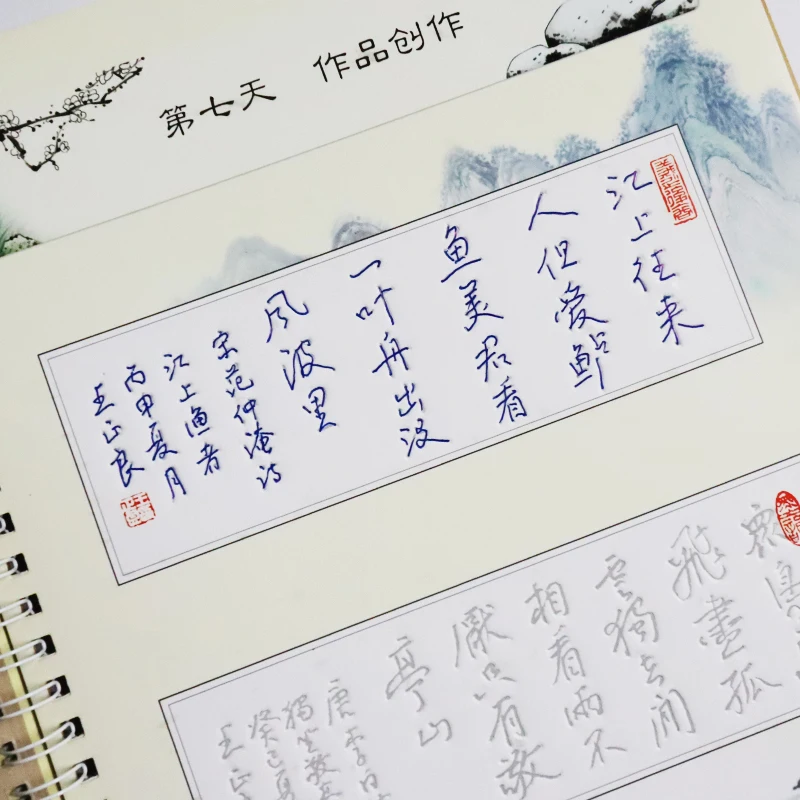 第七天 作品创作
江上往来
人但愛鲈
鱼美君看
一叶舟出没
風波里
宋范仲淹诗
江上渔者
丙申夏月
王正良
眾鳥
飛盡孤
雲獨去闲
相看兩不
厭只有敬
亭山
唐李白
獨坐敬
癸巳夏
王正